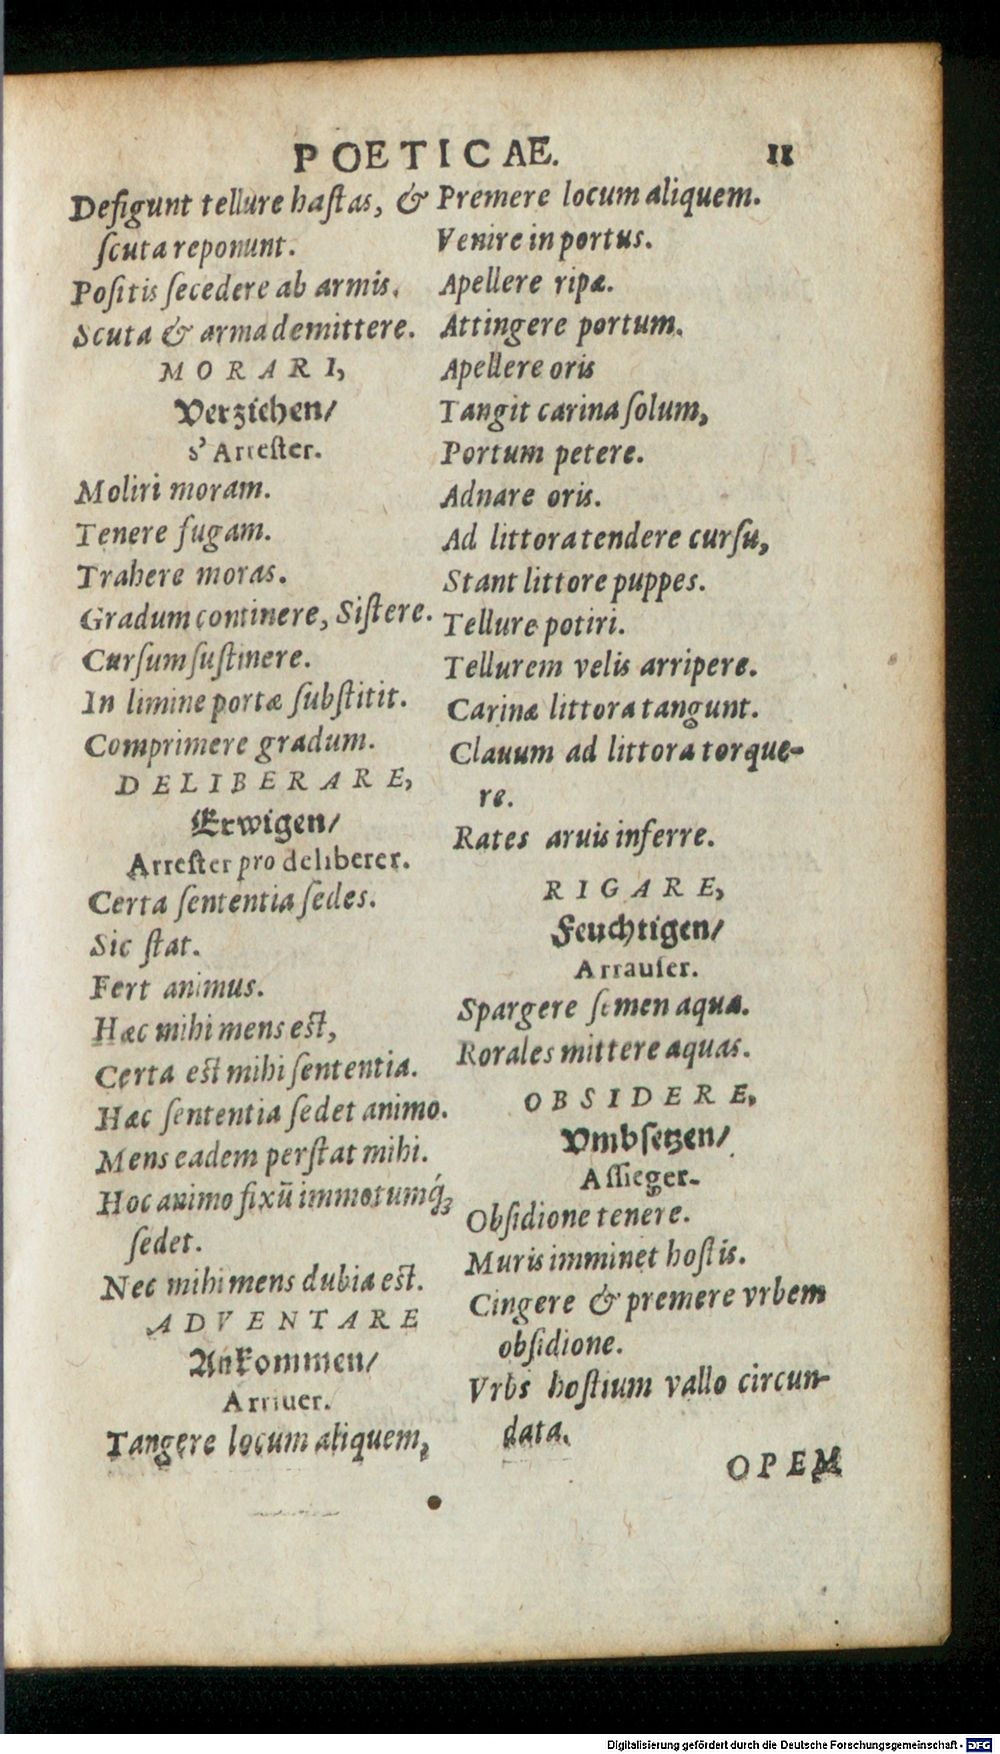 POETICAE.
11
Defigunt tellure hastas, &
scuta reponunt.
Positis secedere ab armis.
Scuta & arma demittere.
MORARI,
Verziehen/
s'Arrester.
Moliri moram.
Tenere fugam.
Trahere moras.
Gradum continere, Sistere.
Cursum sustinere.
In limine portæ substitit.
Comprimere gradum.
DELIBERARE,
Erwigen/
Arrester pro deliberer.
Certa sententia sedes.
Sic stat.
Fert animus.
Hæc mihi mens est,
Certa est mihi sententia.
Hæc sententia sedet animo.
Mens eadem perstat mihi.
Hoc animo fixū immotumq́;
sedet.
Nec mihi mens dubia est.
ADVENTARE
Ankommen/
Arriuer.
Tangere locum aliquem,
Premere locum aliquem.
Venire in portus.
Apellere ripæ.
Attingere portum.
Apellere oris
Tangit carina solum,
Portum petere.
Adnare oris.
Ad littora tendere cursu,
Stant littore puppes.
Tellure potiri.
Tellurem velis arripere.
Carinæ littora tangunt.
Clauum ad littora torque-
re.
Rates aruis inferre.
RIGARE,
Feuchtigen/
Arrauser.
Spargere semen aqua.
Rorales mittere aquas.
OBSIDERE,
Vmbsetzen/
Assieger.
Obsidione tenere.
Muris imminet hostis.
Cingere & premere vrbem
obsidione.
Vrbs hostium vallo circun-
data.
OPEM
Digitalisierung gefördert durch die Deutsche Forschungsgemeinschaft - DFG